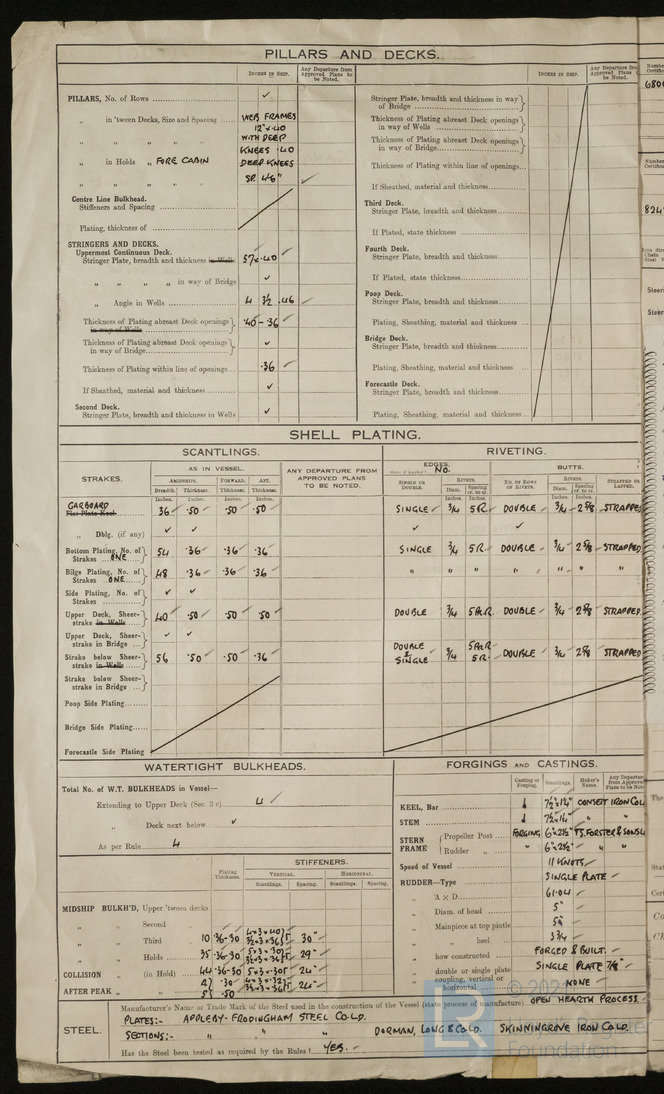 PILLARS AND DECKS.
INCHES IN SHIP.
Any Departure from Approved Plans to be Noted.
PILLARS, No. of Rows
„ in 'tween Decks, Size and Spacing
WEB FRAMES
12"x.40
WITH DEEP
KNEES .40
„ in Holds „ FORE CABIN
DEEP KNEES
SP. 4'6"
Centre Line Bulkhead.
Stiffeners and Spacing
Plating, thickness of
STRINGERS AND DECKS.
Uppermost Continuous Deck.
Stringer Plate, breadth and thickness in Wells 57x.40
„ „ „ „ in way of Bridge
„ Angle in Wells 4 3½ .46
Thickness of Plating abreast Deck openings in way of Wells .40-.36
Thickness of Plating abreast Deck openings in way of Bridge
Thickness of Plating within line of openings .36
If Sheathed, material and thickness
Second Deck.
Stringer Plate, breadth and thickness in Wells
INCHES IN SHIP.
Any Departure from Approved Plans to be Noted.
Stringer Plate, breadth and thickness in way of Bridge
Thickness of Plating abreast Deck openings in way of Wells
Thickness of Plating abreast Deck openings in way of Bridge
Thickness of Plating within line of openings
If Sheathed, material and thickness
Third Deck.
Stringer Plate, breadth and thickness
If Plated, state thickness
Fourth Deck.
Stringer Plate, breadth and thickness
If Plated, state thickness
Poop Deck.
Stringer Plate, breadth and thickness
Plating, Sheathing, material and thickness
Bridge Deck.
Stringer Plate, breadth and thickness
Plating, Sheathing, material and thickness
Forecastle Deck.
Stringer Plate, breadth and thickness
Plating, Sheathing, material and thickness
SHELL PLATING.
SCANTLINGS.
RIVETING.
STRAKES.
AS IN VESSEL.
AMIDSHIPS. FORWARD. AFT.
Breadth. Thickness. Thickness. Thickness.
Inches. Inches. Inches. Inches.
ANY DEPARTURE FROM APPROVED PLANS TO BE NOTED.
EDGES. No.
BUTTS.
SINGLE OR DOUBLE.
RIVETS.
Diam. Spacing cr. to cr.
NO. OF ROWS OF RIVETS.
RIVETS.
Diam. Spacing cr. to cr.
STRAPPED OR LAPPED
GARBOARD Flat Plate Keel 36 .50 .50 .50 SINGLE 3/4 5R DOUBLE 3/4 2 5/8 STRAPPED
„ Dblg. (if any)
Bottom Plating, No. of Strakes ONE 54 .36 .36 .36 SINGLE 3/4 5R DOUBLE 3/4 2 5/8 STRAPPED
Bilge Plating, No. of Strakes ONE 48 .36 .36 .36 „ „ „ „ „ „ „
Side Plating, No. of Strakes
Upper Deck, Sheerstrake in Wells 40 .50 .50 .50 DOUBLE 3/4 DOUBLE 3/4 2 5/8 STRAPPED
Upper Deck, Sheerstrake in Bridge
Strake below Sheerstrake in Wells 56 .50 .50 .36 DOUBLE & SINGLE 3/4 5R DOUBLE 3/4 2 5/8 STRAPPED
Strake below Sheerstrake in Bridge
Poop Side Plating
Bridge Side Plating
Forecastle Side Plating
WATERTIGHT BULKHEADS.
Total No. of W.T. BULKHEADS in Vessel—
Extending to Upper Deck (Sec. 3 c) 4
„ Deck next below
As per Rule 4
Plating Thickness.
STIFFENERS.
VERTICAL. HORIZONTAL.
Scantlings. Spacing. Scantlings. Spacing.
MIDSHIP BULKH'D, Upper 'tween decks
„ „ Second „
„ „ Third „ 10 .36-.30 30"
„ „ Holds 35 .36-.30 29"
COLLISION „ (in Hold) 44 .36-.30 5x3x.30 24"
AFTER PEAK „ „ .30 24"
51 .50
FORGINGS AND CASTINGS.
Casting or Forging.
Scantlings.
Maker's Name.
Any Departure from Approved Plans to be Noted
KEEL, Bar 7½"x1¼" CONSETT IRON CO LD
STEM 7½"x1¼" „ „
STERN FRAME
Propeller Post FORGING 6"x2½" T.S. FORSTER & SONS LD
Rudder „ „ 6"x2½" „ „
Speed of Vessel 11 KNOTS
RUDDER—Type SINGLE PLATE
„ A x D 61.04
„ Diam. of head 5"
„ Mainpiece at top pintle
„ „ heel 3¾
„ how constructed FORGED & BUILT.
„ double or single plate SINGLE PLATE 7/8"
„ coupling, vertical or horizontal NONE
STEEL.
Manufacturer's Name or Trade Mark of the Steel used in the construction of the Vessel (state process of manufacture) OPEN HEARTH PROCESS
PLATES:- APPLEBY-FRODINGHAM STEEL CO.LD.
SECTIONS:- „ „ „ DORMAN, LONG & CO LD. SKINNINGROVE IRON CO.LD.
Has the Steel been tested as required by the Rules? YES.
LR
Foundation